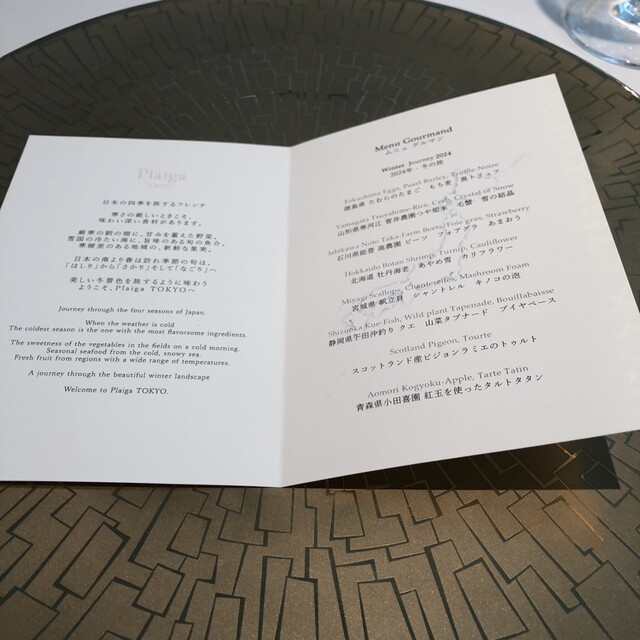 Plaiga
日本の四季を旅するフレンチ
寒さの厳しいときこそ、
味わい深い食材があります。
厳寒の朝の畑に、甘みを蓄えた野菜。
雪国の冷たい海に、旨味のある旬の魚介。
寒暖差のある地域の、新鮮な果実。
日本の南より春は訪れ季節の旬は、
「はしり」から「さかり」そして「なごり」へ
美しい冬景色を旅するように味わう
ようこそ、Plaiga TOKYOへ
Journey through the four seasons of Japan.
When the weather is cold
The coldest season is the one with the most flavorsome ingredients.
The sweetness of the vegetables in the fields on a cold morning.
Seasonal seafood from the cold, snowy sea.
Fresh fruit from regions with a wide range of temperatures.
A journey through the beautiful winter landscape
Welcome to Plaiga TOKYO.
Menu Gourmand
ムニュ グルマン
Winter Journey 2024
2024年 - 冬の旅
Tokushima Eggs, Pearl Barley, Truffle Noire
徳島県 たむらのたまご もち麦 黒トリュフ
Yamagata Tsuyahime Rice, Crab, Crystal of Snow
山形県寒河江 つや姫米 毛蟹 雪の結晶
Ishikawa Noto Taka Farm Beets, Foie gras, Strawberry
石川県能登 高農園 ビーツ フォアグラ あまおう
Hokkaido Botan Shrimps, Turnip, Cauliflower
北海道 牡丹海老 あやめ雪 カリフラワー
Miyagi Scallops, Chanterelles, Mushroom Foam
宮城県 帆立貝 シャントレル キノコの泡
Shizuoka Kue-Fish, Wild plant Tapenade, Bouillabaisse
静岡県下田沖釣りクエ 山菜タプナード ブイヤベース
Scotland Pigeon, Tourte
スコットランド産ピジョンラミエのトゥルト
Aomori Kogyoku-Apple, Tarte Tatin
青森県小田喜園 紅玉を使ったタルトタタン